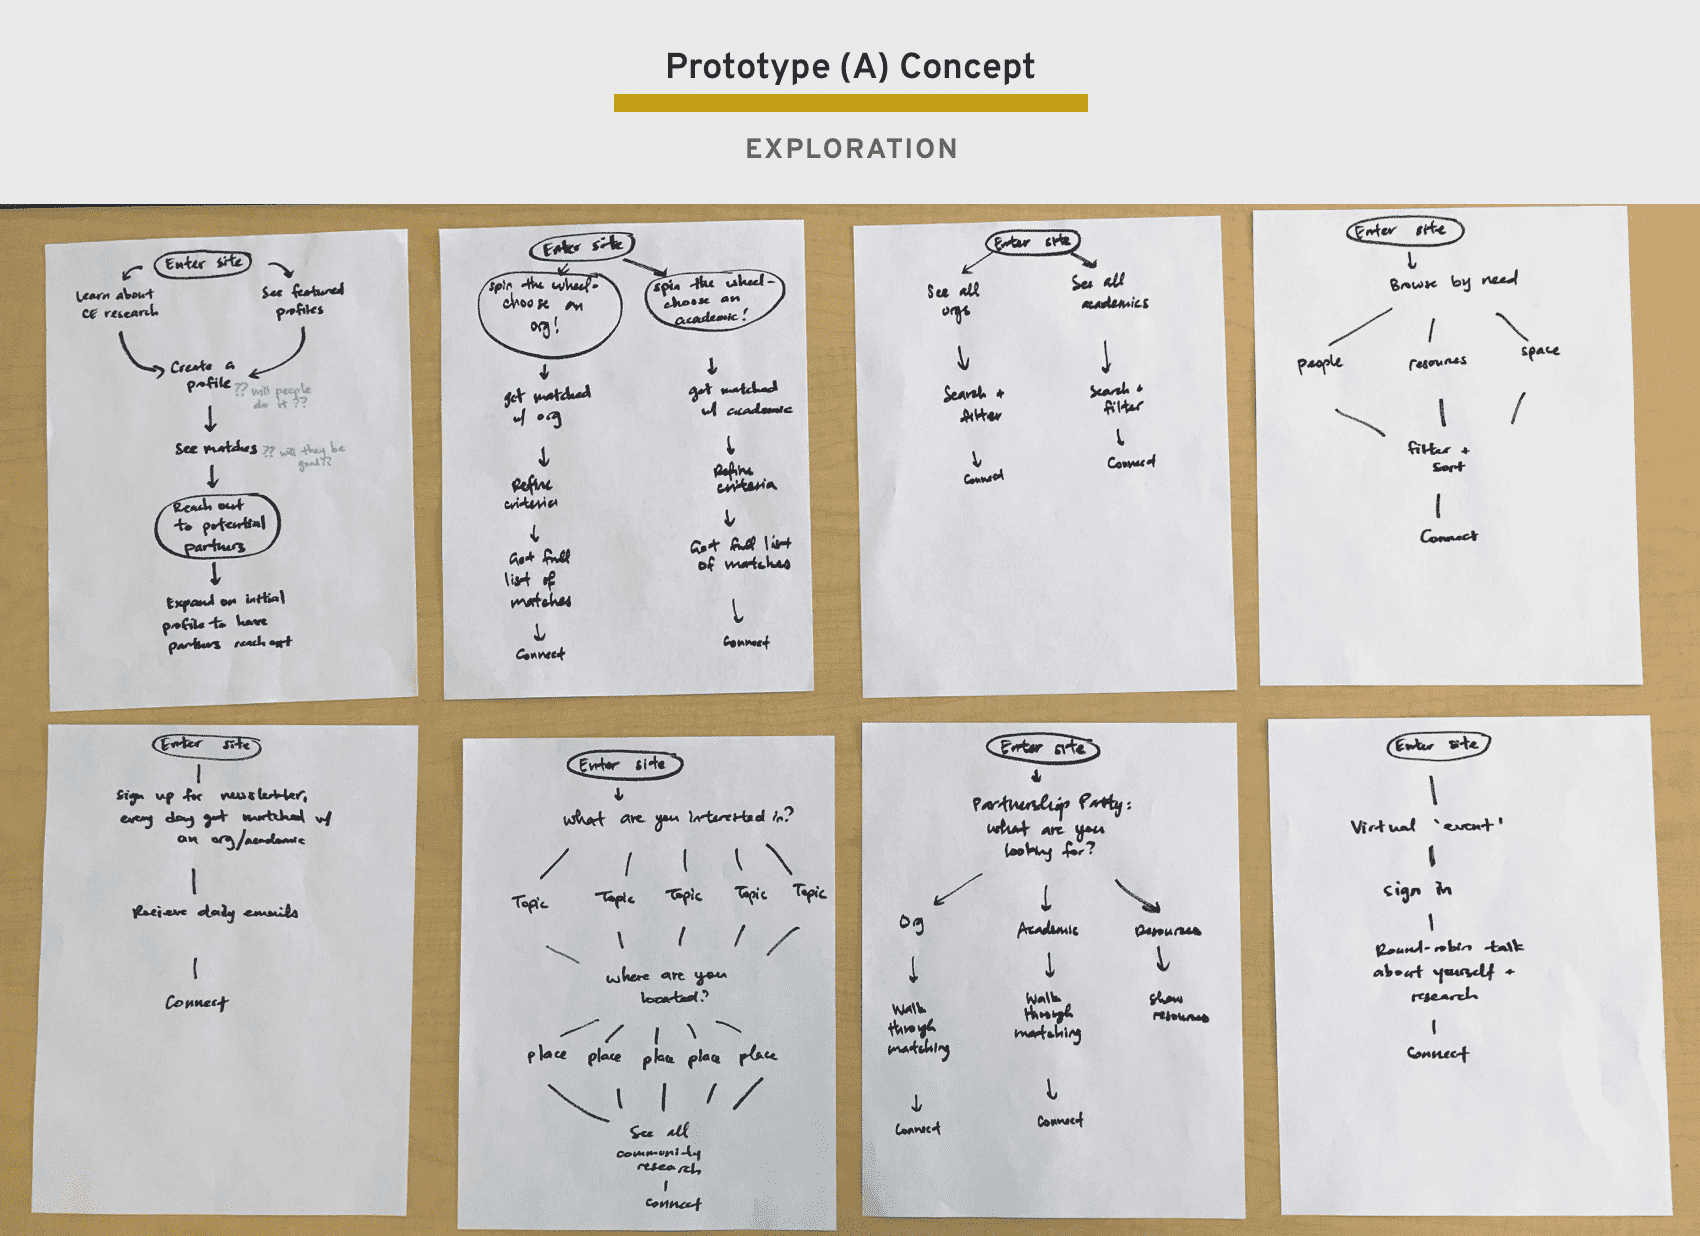 Prototype (A) Concept
EXPLORATION
Enter site
Learn about
CE research
See featured
profiles
Create a
profile
?? will people
do it ??
See matches
?? will they be
good??
Reach out
to potential
partners
Expand on initial
profile to have
partners reach out
Enter site
spin the wheel-
choose an
org!
spin the wheel-
choose an
academic!
get matched
w/ org
get matched
w/ academic
Refine
criteria
Refine
criteria
Get full
list of
matches
Get full list
of matches
Connect
Connect
Enter site
See all
orgs
See all
academics
Search +
filter
Search +
filter
Connect
Connect
Enter site
Browse by need
people
resources
space
filter +
sort
Connect
Enter site
Sign up for newsletter,
every day get matched w/
an org/academic
Recieve daily emails
Connect
Enter site
What are you interested in?
Topic
Topic
Topic
Topic
Topic
where are you
located?
place
place
place
place
place
See all
community
research
Connect
Enter site
Partnership Party:
What are you
looking for?
Org
Academic
Resources
Walk
through
matching
Walk
through
matching
Show
resources
Connect
Connect
Enter site
Virtual 'event'
Sign in
Round-robin talk
about yourself +
research
Connect